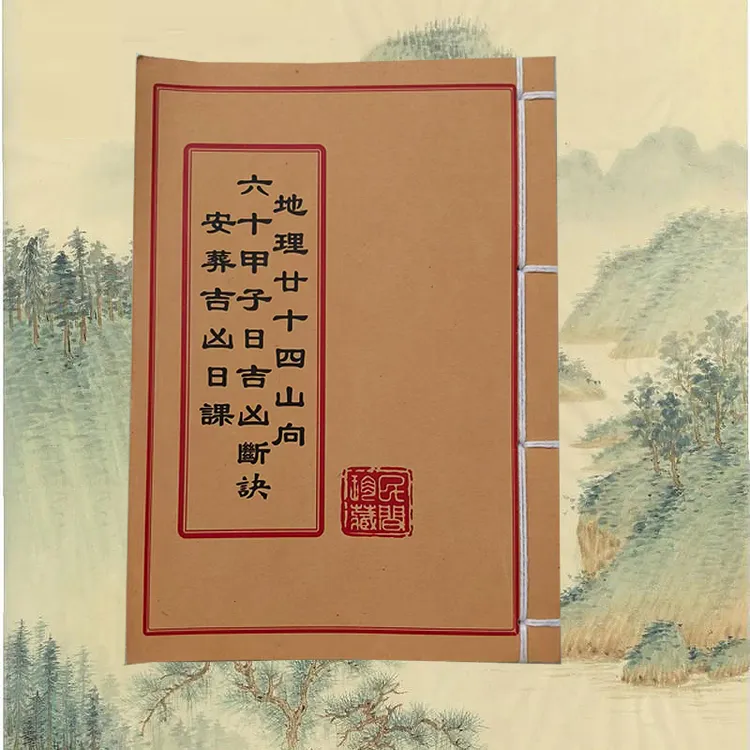 地理廿十四山向
六十甲子日吉凶斷訣
安葬吉凶日課
民間
珍藏